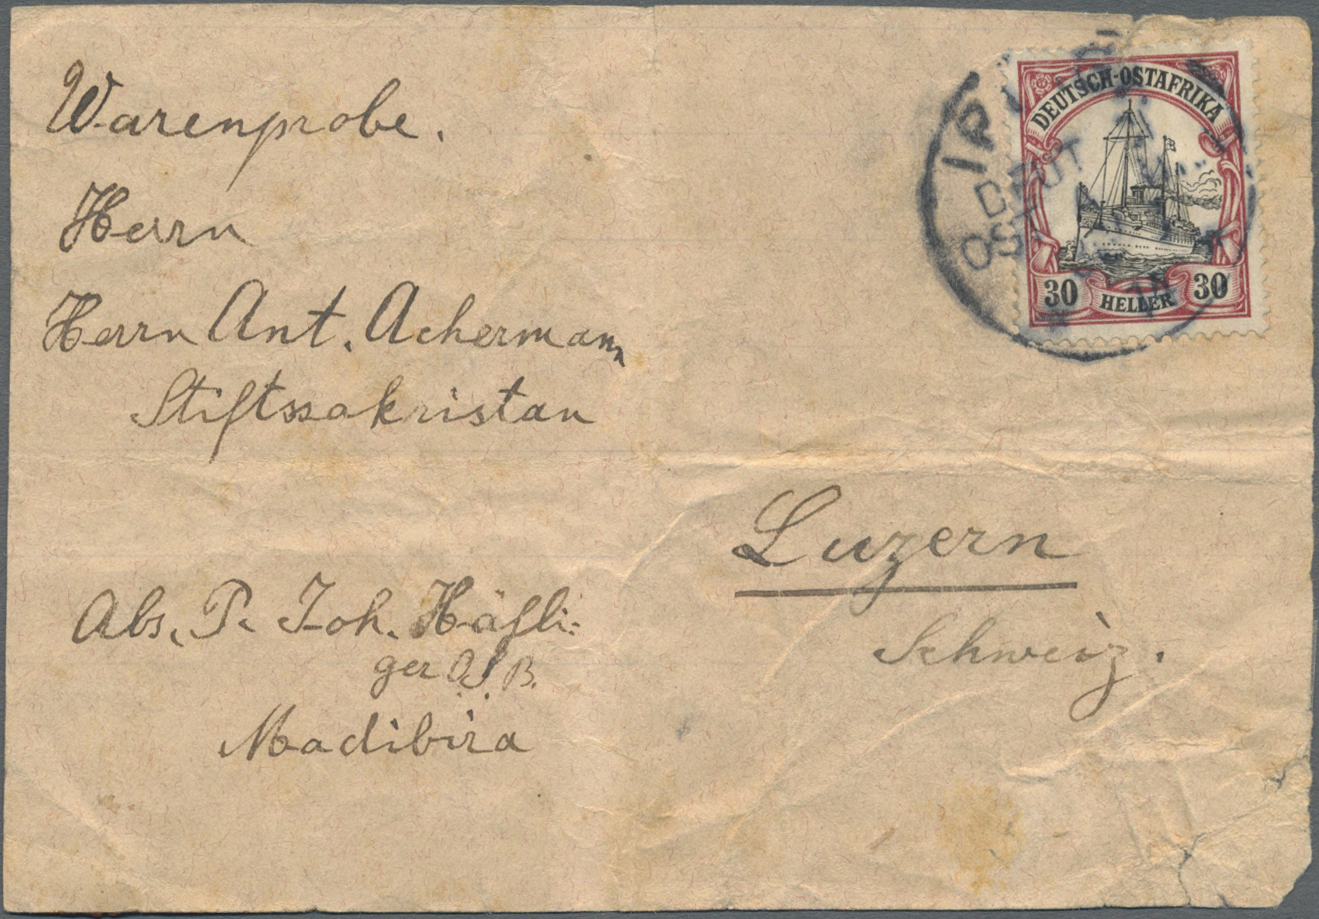 Warenprobe.
Herrn
Herrn Ant. Achermann
Stiftssakristan
Luzern
Schweiz.
Abs. P. Joh. Häfli:
ger O.S.B.
Madibira
DEUTSCH-OSTAFRIKA
30 HELLER 30